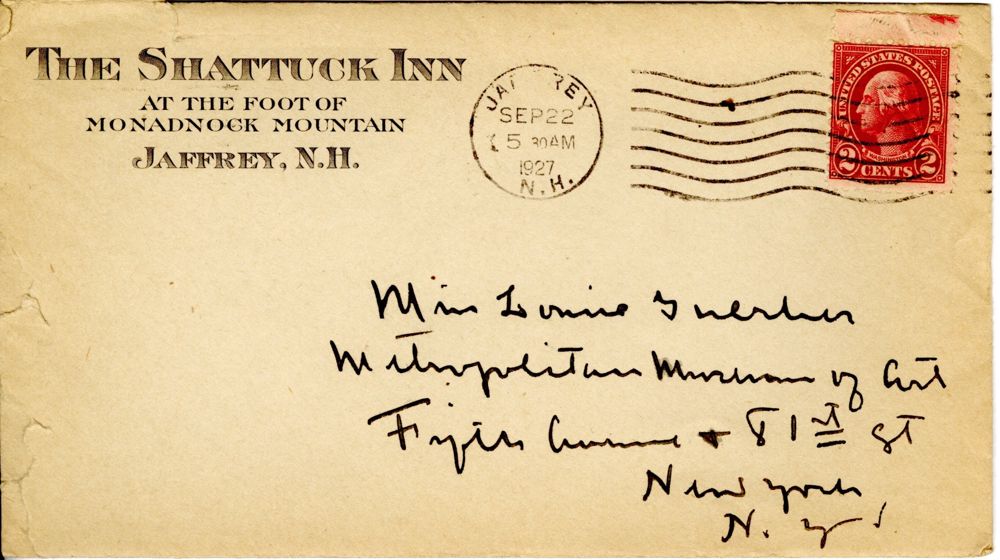 THE SHATTUCK INN
AT THE FOOT OF
MONADNOCK MOUNTAIN
JAFFREY, N.H.
JAFFREY
SEP 22
5 30AM
1927
N.H.
UNITED STATES POSTAGE
WASHINGTON
2 CENTS 2
Miss Louise Guerber
Metropolitan Museum of Art
Fifth Avenue + 81st St
New York
N.Y.